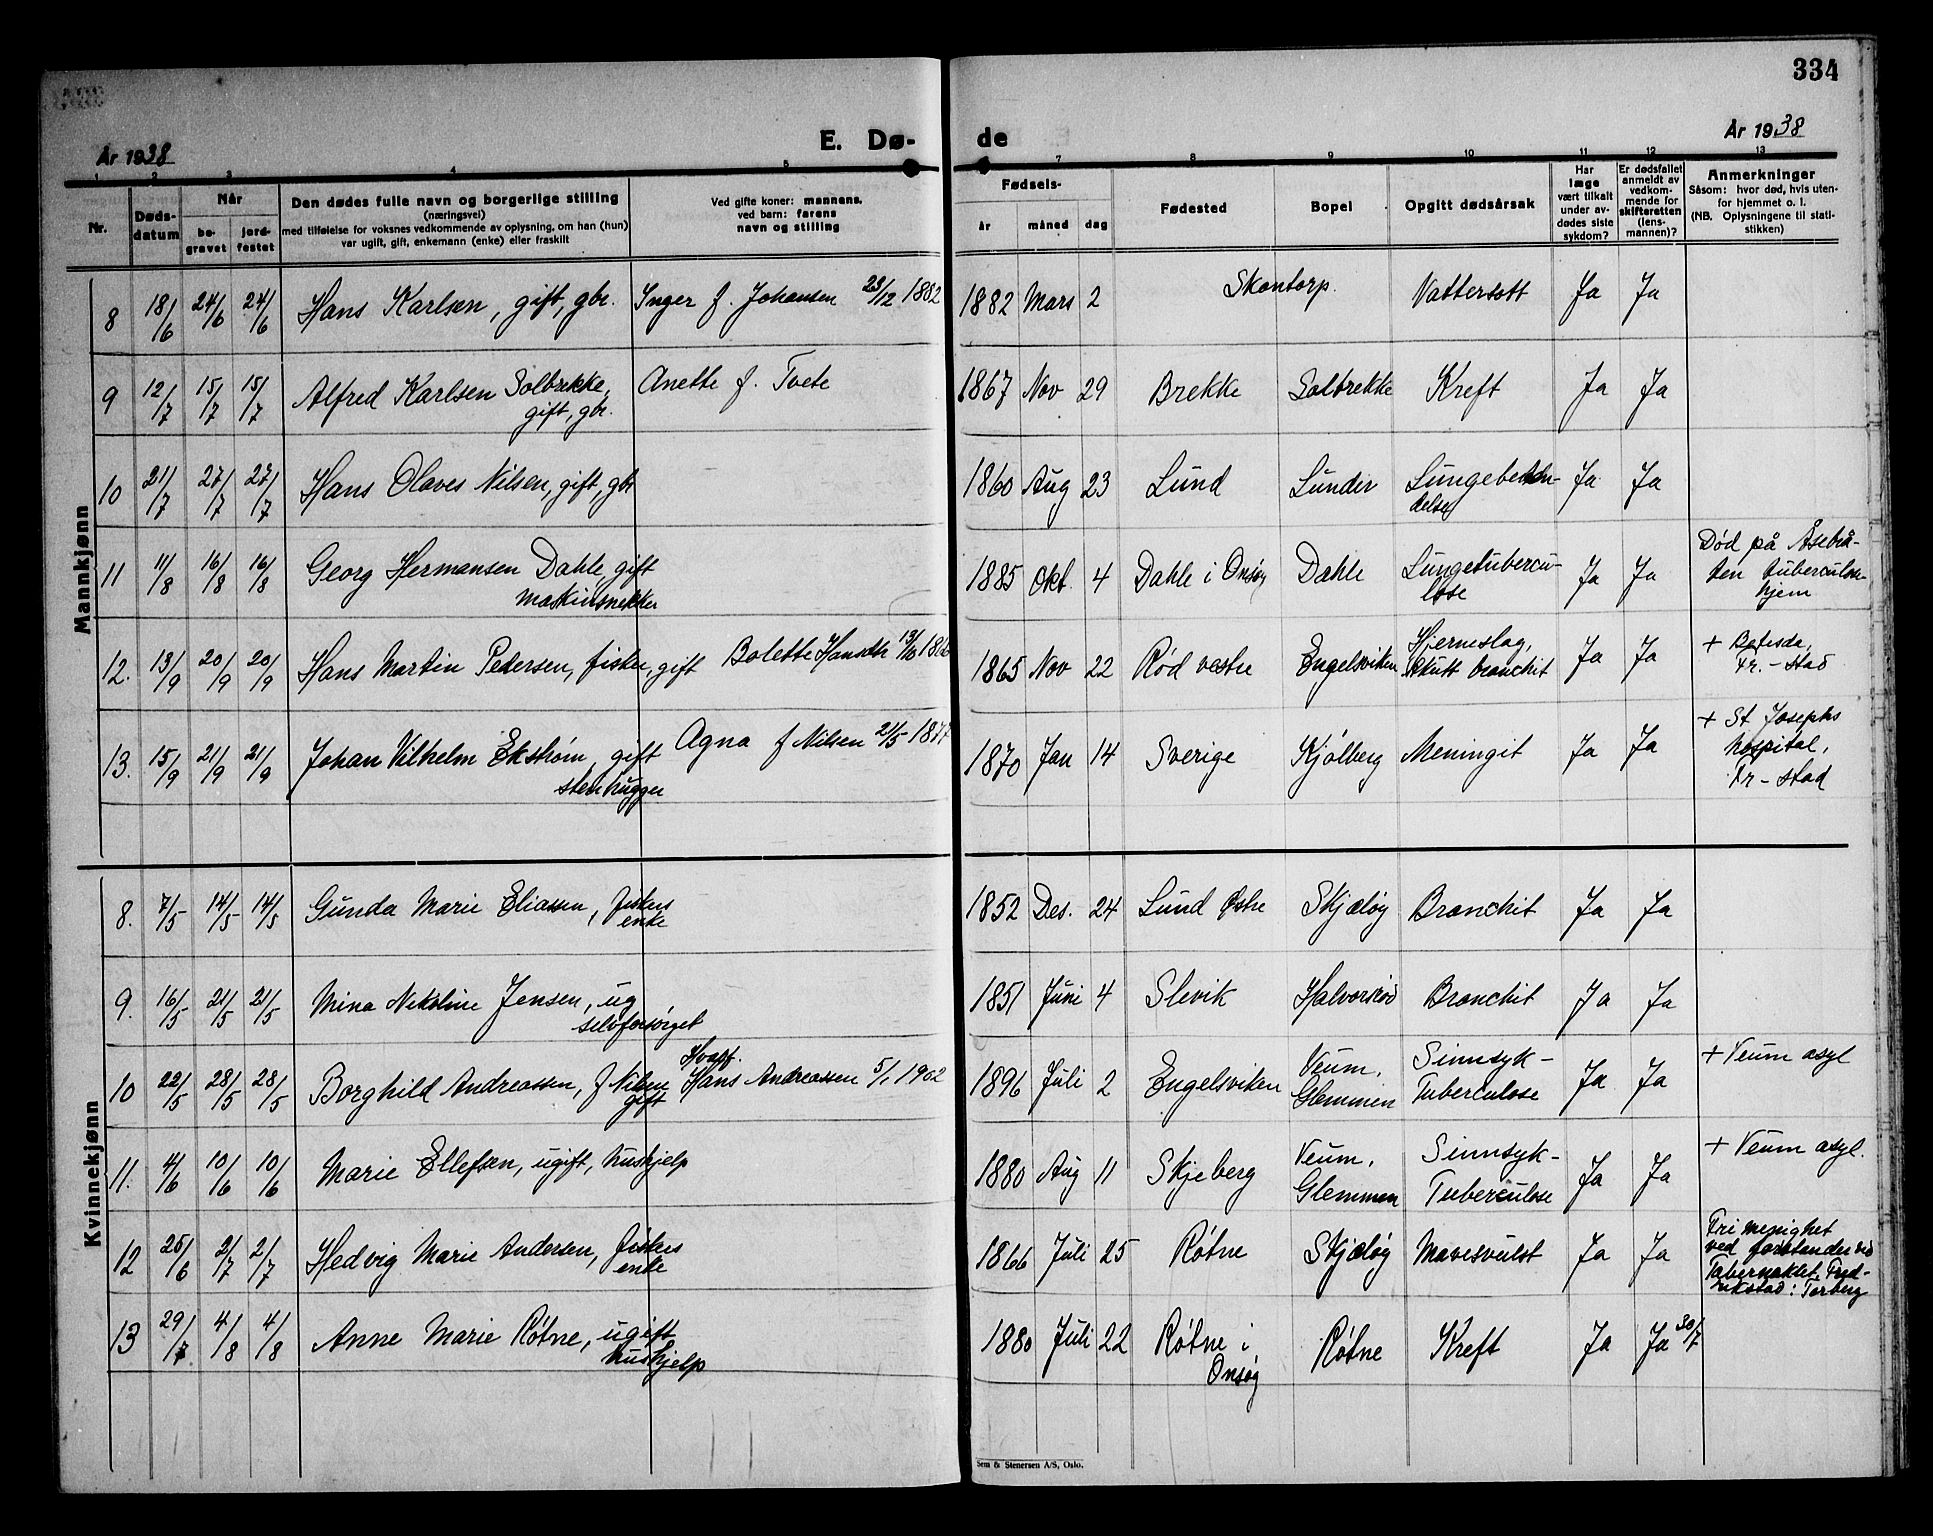 334
År 1938
E. Dø-
de
År 1938
1 2 3 4 5 7 8 9 10 11 12 13
Nr.
Døds-
datum
Når
be-
gravet
jord-
festet
Den dødes fulle navn og borgerlige stilling
(næringsvei)
med tilføielse for voksnes vedkommende av oplysning, om han (hun)
var ugift, gift, enkemann (enke) eller fraskilt
Ved gifte koner: mannens,
ved barn: farens
navn og stilling
Fødsels-
år måned dag
Fødested
Bopel
Opgitt dødsårsak
Har
læge
vært tilkalt
under av-
dødes siste
sykdom?
Er dødsfallet
anmeldt av
vedkom-
mende for
skifteretten
(lens-
mannen)?
Anmerkninger
Såsom: hvor død, hvis uten-
for hjemmet o. l.
(NB. Oplysningene til stati-
stikken)
Mannkjønn
8 18/6 24/6 24/6 Hans Karlsen, gift, gbr. Inger f. Johansen 23/12 1882 1882 Mars 2 Skontorp. Vattersott Ja Ja
9 12/7 15/7 15/7 Alfred Karlsen Solbrekke, Anette f. Tvete 1867 Nov 29 Brekke Solbrekke Kreft Ja Ja
gift, gbr.
10 21/7 27/7 27/7 Hans Olaves Nilsen, gift, gbr 1860 Aug 23 Lund Lunder Lungebeten- Ja Ja
delse
11 11/8 16/8 16/8 Georg Hermansen Dahle, gift 1885 Okt. 4 Dahle i Onsøy Dahle Lungetubercu- Ja Ja Død på Åsebrå-
maskinsnekker lose ten tuberculose-
hjem
12. 13/9 20/9 20/9 Hans Martin Pedersen, fisker, gift Bolette Hansdtr 13/10 1866 1865 Nov 22 Rød vestre Engelsviken Hjerneslag, Ja Ja + Betesda,
Akutt bronchit Fr.-stad
13. 15/9 21/9 21/9 Johan Vilhelm Ekstrøm, gift Agna f Nilsen 21/5 1877 1870 Jan 14 Sverige Kjølberg Meningit Ja Ja + St Josephs
stenhugger hospital,
Fr-stad
Kvinnekjønn
8. 7/5 14/5 14/5 Gunda Marie Eliassen, fiskers 1852 Des. 24 Lund Østre Skjæløy Bronchit Ja Ja
enke
9. 16/5 21/5 21/5 Mina Nikoline Jensen, ug 1851 Juni 4 Slevik Halvorsrød Bronchit Ja Ja
selvforsørget
10 22/5 28/5 28/5 Borghild Andreassen, f Nilsen Hans Andreassen 5/1 1902 1896 Juli 2 Engelsviken Veum, Sinnsyk- Ja Ja + Veum asyl
gift Glemmen Tuberculose
11. 4/6 10/6 10/6 Marie Ellefsen, ugift, hushjelp 1880 Aug 11 Skjeberg Veum, Sinnsyk- Ja Ja + Veum asyl.
Glemmen Tuberculose
12 26/6 2/7 2/7 Hedvig Marie Andersen, fiskers 1866 Juli 25 Røtne Skjæløy Mavesvulst Ja Ja Fri menighet
enke ved forstander ved
Tabernaklet, Fred-
rikstad: Torberg
13 29/7 4/8 4/8 Anne Marie Røtne, ugift 1880 Juli 22 Røtne i Røtne Kreft Ja Ja 30/7
hushjelp Onsøy
Sem & Stenersen A/S, Oslo.